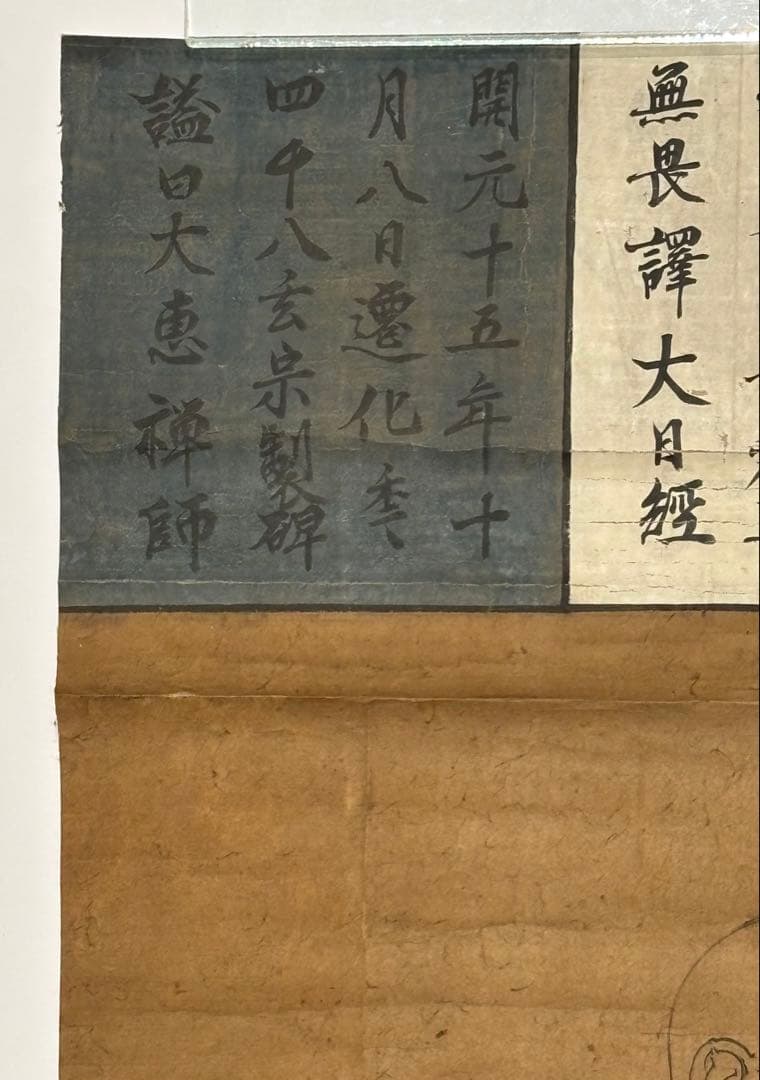 無畏譯大日經
開元十五年十
月八日遷化季
四十八玄宗製碑
謚曰大恵禅師